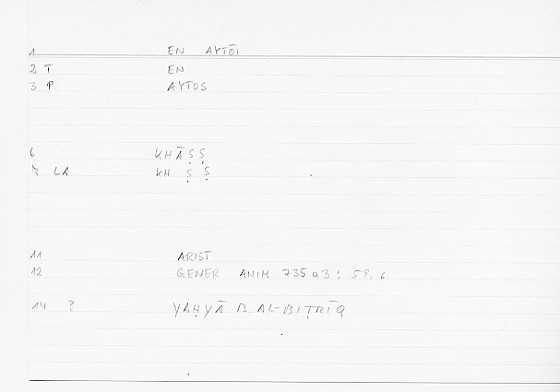 1 EN AYTŌI
2 T EN
3 P AYTOS
6 KHĀṢṢ
7 LA KH ṢṢ
11 ARIST
12 GENER ANIM 735a3; 59.6
14 ? YAḤYĀ B. AL-BIṬRĪQ